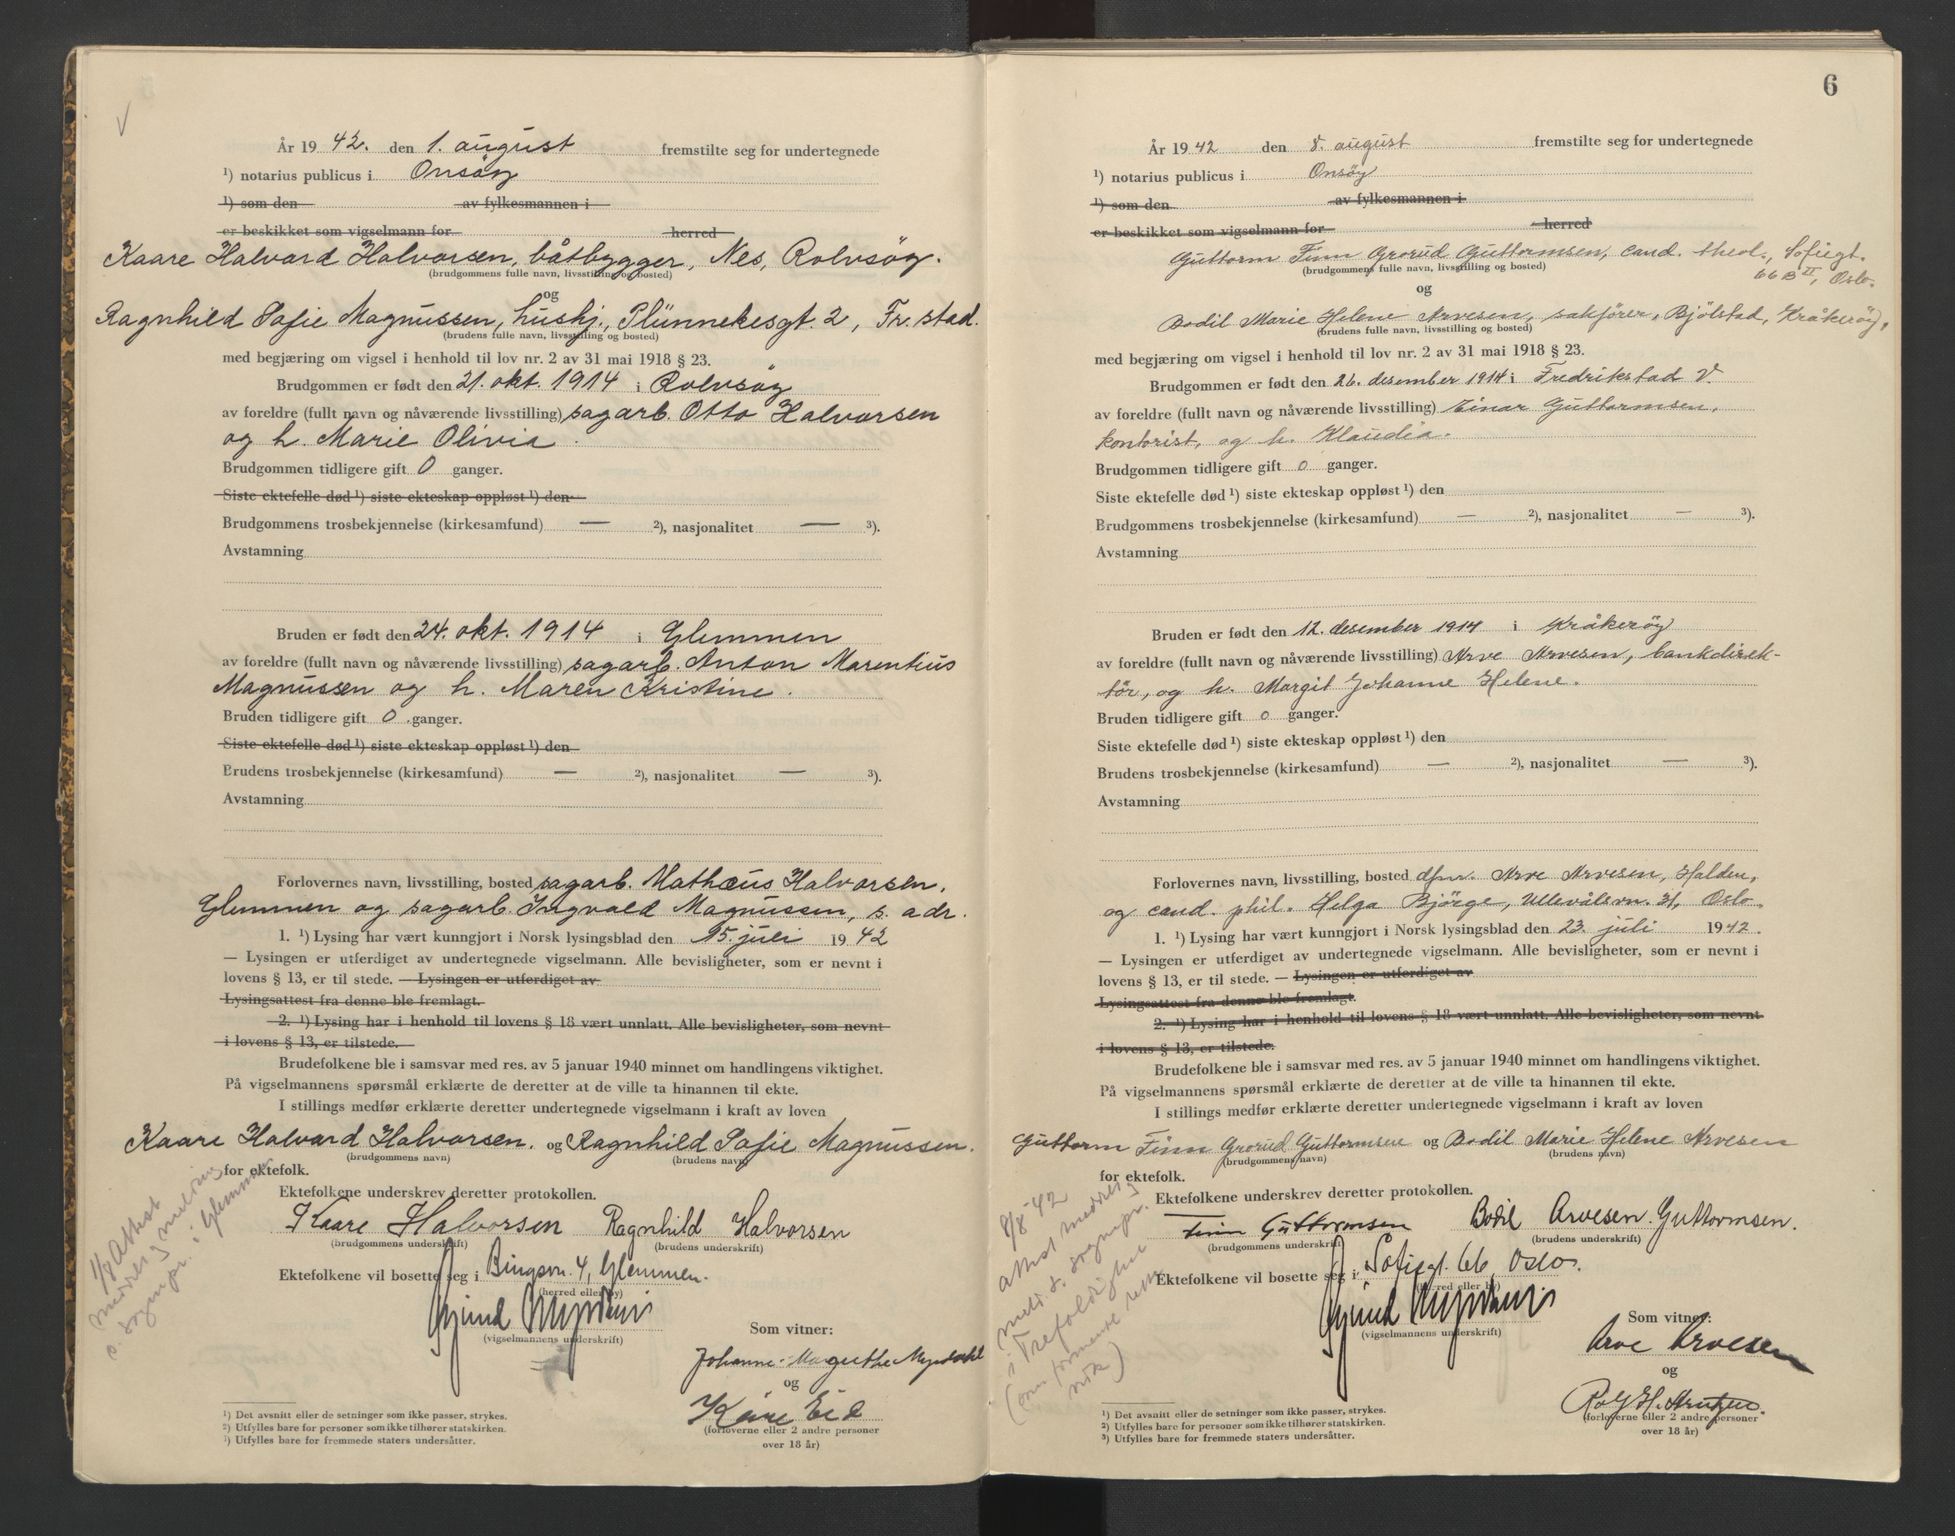 År 1942. den 1. august fremstilte seg for undertegnede
¹) notarius publicus i Onsøy
¹) som den av fylkesmannen i
er beskikket som vigselmann for herred
Kaare Halvard Halvorsen, båtbygger, Nes, Rolvsøy.
(brudgommens fulle navn, livsstilling og bosted)
og
Ragnhild Sofie Magnussen, hushj., Plünnekesgt. 2, Fr.stad.
(brudens fulle navn, livsstilling og bosted)
med begjæring om vigsel i henhold til lov nr. 2 av 31 mai 1918 § 23.
Brudgommen er født den 21. okt. 1914 i Rolvsøy
av foreldre (fullt navn og nåværende livsstilling) sagarb. Otto Halvorsen
og h. Marie Olivia.
Brudgommen tidligere gift 0 ganger.
Siste ektefelle død ¹) siste ekteskap oppløst ¹) den
Brudgommens trosbekjennelse (kirkesamfund) — ²), nasjonalitet — ³).
Avstamning
Bruden er født den 24. okt. 1914 i Glemmen
av foreldre (fullt navn og nåværende livsstilling) sagarb. Anton Marentius
Magnussen og h. Maren Kristine.
Bruden tidligere gift 0 ganger.
Siste ektefelle død ¹) siste ekteskap oppløst ¹) den
Brudens trosbekjennelse (kirkesamfund) — ²), nasjonalitet — ³).
Avstamning
Forlovernes navn, livsstilling, bosted sagarb. Mathæus Halvorsen,
Glemmen og sagarb. Ingvald Magnussen, s. adr.
1. ¹) Lysing har vært kunngjort i Norsk lysingsblad den 15. juli 1942
— Lysingen er utferdiget av undertegnede vigselmann. Alle bevisligheter, som er nevnt i
lovens § 13, er til stede. — Lysingen er utferdiget av
Lysingsattest fra denne ble fremlagt.
2. ¹) Lysing har i henhold til lovens § 18 vært unnlatt. Alle bevisligheter, som nevnt
i lovens § 13, er tilstede.
Brudefolkene ble i samsvar med res. av 5 januar 1940 minnet om handlingens viktighet.
På vigselmannens spørsmål erklærte de deretter at de ville ta hinannen til ekte.
I stillings medfør erklærte deretter undertegnede vigselmann i kraft av loven
Kaare Halvard Halvorsen. og Ragnhild Sofie Magnussen.
(brudgommens navn) (brudens navn)
for ektefolk.
Ektefolkene underskrev deretter protokollen.
Kaare Halvorsen Ragnhild Halvorsen
(brudgommens underskrift) (brudens underskrift)
Ektefolkene vil bosette seg i Bingsvn. 4, Glemmen.
(herred eller by)
(vigselmannens underskrift)
Som vitner:
Johanne Magrethe Myrdahl
og
Kåre Eid
(forloverne eller 2 andre personer
over 18 år)
1/8 Attest
i Glemmen
¹) Det avsnitt eller de setninger som ikke passer, strykes.
²) Utfylles bare for personer som ikke tilhører statskirken.
³) Utfylles bare for fremmede staters undersåtter.
6
År 1942 den 8. august fremstilte seg for undertegnede
¹) notarius publicus i Onsøy
¹) som den av fylkesmannen i
er beskikket som vigselmann for herred
Guttorm Finn Grorud Guttormsen, cand. theol., Sofiegt.
66B II, Oslo.
(brudgommens fulle navn, livsstilling og bosted)
og
Bodil Marie Helene Arvesen, sakfører, Bjølstad, Kråkerøy,
(brudens fulle navn, livsstilling og bosted)
med begjæring om vigsel i henhold til lov nr. 2 av 31 mai 1918 § 23.
Brudgommen er født den 26. desember 1914 i Fredrikstad V.
av foreldre (fullt navn og nåværende livsstilling) Einar Guttormsen,
kontorist, og h. Klaudia.
Brudgommen tidligere gift 0 ganger.
Siste ektefelle død ¹) siste ekteskap oppløst ¹) den
Brudgommens trosbekjennelse (kirkesamfund) — ²), nasjonalitet — ³).
Avstamning
Bruden er født den 12. desember 1914 i Kråkerøy
av foreldre (fullt navn og nåværende livsstilling) Arve Arvesen, bankdirek-
tør, og h. Margit Johanne Helene.
Bruden tidligere gift 0 ganger.
Siste ektefelle død ¹) siste ekteskap oppløst ¹) den
Brudens trosbekjennelse (kirkesamfund) — ²), nasjonalitet — ³).
Avstamning
Forlovernes navn, livsstilling, bosted Arve Arvesen, Halden,
og cand. phil. Helga Bjørge, Ullevålsvn. 31, Oslo.
1. ¹) Lysing har vært kunngjort i Norsk lysingsblad den 23. juli 1942.
— Lysingen er utferdiget av undertegnede vigselmann. Alle bevisligheter, som er nevnt i
lovens § 13, er til stede. — Lysingen er utferdiget av
Lysingsattest fra denne ble fremlagt.
2. ¹) Lysing har i henhold til lovens § 18 vært unnlatt. Alle bevisligheter, som nevnt
i lovens § 13, er tilstede.
Brudefolkene ble i samsvar med res. av 5 januar 1940 minnet om handlingens viktighet.
På vigselmannens spørsmål erklærte de deretter at de ville ta hinannen til ekte.
I stillings medfør erklærte deretter undertegnede vigselmann i kraft av loven
Guttorm Finn Grorud Guttormsen og Bodil Marie Helene Arvesen
(brudgommens navn) (brudens navn)
for ektefolk.
Ektefolkene underskrev deretter protokollen.
Finn Guttormsen Bodil Arvesen Guttormsen.
(brudgommens underskrift) (brudens underskrift)
Ektefolkene vil bosette seg i Sofiegt. 66, Oslo.
(herred eller by)
(vigselmannens underskrift)
Som vitner:
Arve Arvesen
og
Rolf H.
(forloverne eller 2 andre personer
over 18 år)
8/8-42
attest
i Trefoldighet
¹) Det avsnitt eller de setninger som ikke passer, strykes.
²) Utfylles bare for personer som ikke tilhører statskirken.
³) Utfylles bare for fremmede staters undersåtter.